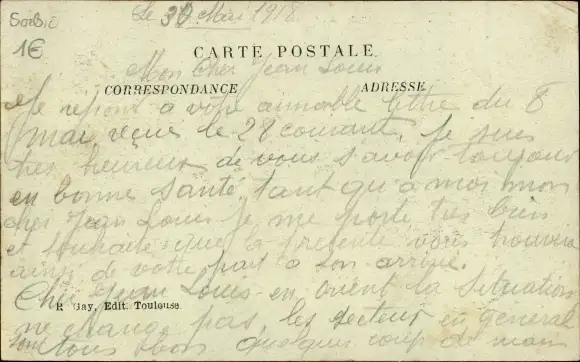 Serbie
1€
Le 30 Mai 1918
CARTE POSTALE
Mon Cher Jean Louis
CORRESPONDANCE
ADRESSE
Je repons a votre aimable lettre du 8
mai reçue le 28 courant. Je suis
tres heureux de vous savoir toujours
en bonne santé, tant qu'a moi mon
cher Jean Louis je me porte tres bien
et souhaite que la presente vous trouve
ainsi de votre part a son arrivé.
Cher Jean Louis en orient la situation
R. Gay, Edit. Toulouse
ne change pas, les secteurs en general
sont tous bons quelques coup de main